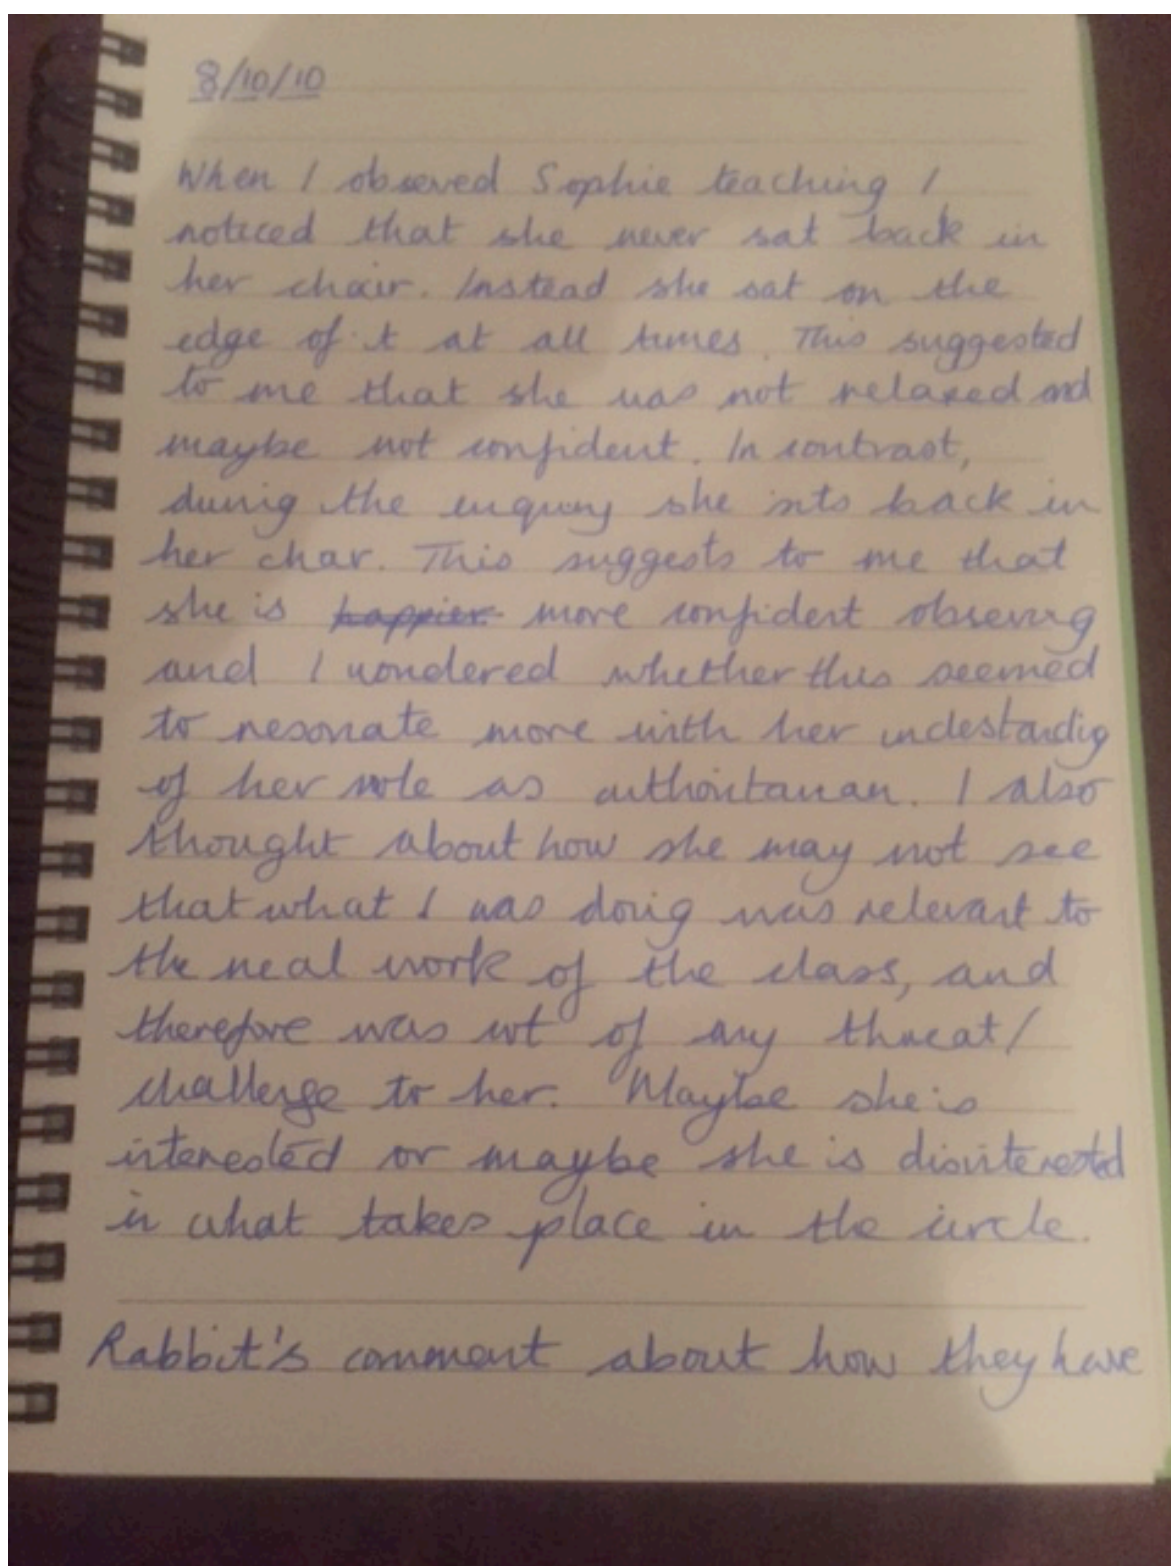 8/10/10
When I observed Sophie teaching I
noticed that she never sat back in
her chair. Instead she sat on the
edge of it at all times. This suggested
to me that she was not relaxed and
maybe not confident. In contrast,
during the enquiry she sits back in
her chair. This suggests to me that
she is happier more confident observing
and I wondered whether this seemed
to resonate more with her understanding
of her role as authoritarian. I also
thought about how she may not see
that what I was doing was relevant to
the real work of the class, and
therefore was not of any threat/
challenge to her. Maybe she is
interested or maybe she is disinterested
in what takes place in the circle.
Rabbit's comment about how they have